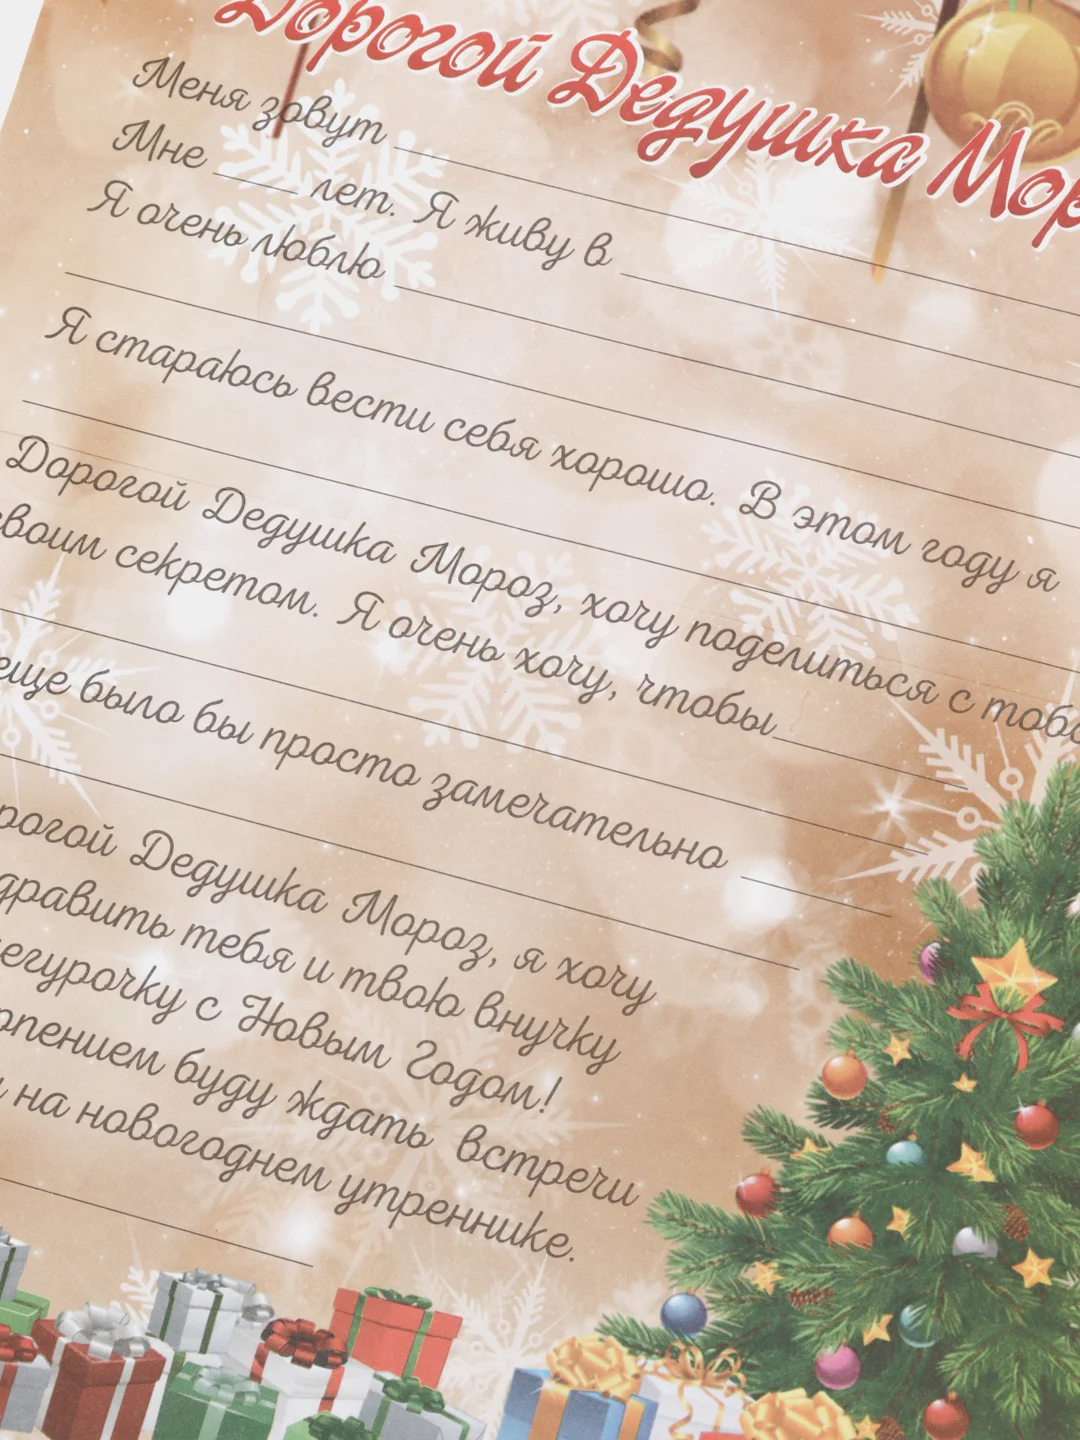 Дорогой Дедушка Мор
Меня зовут
Мне ____ лет. Я живу в
Я очень люблю
Я стараюсь вести себя хорошо. В этом году я
Дорогой Дедушка Мороз, хочу поделиться с тобо
своим секретом. Я очень хочу, чтобы
еще было бы просто замечательно
рогой Дедушка Мороз, я хочу
дравить тебя и твою внучку
егурочку с Новым Годом!
рпением буду ждать встречи
на новогоднем утреннике.